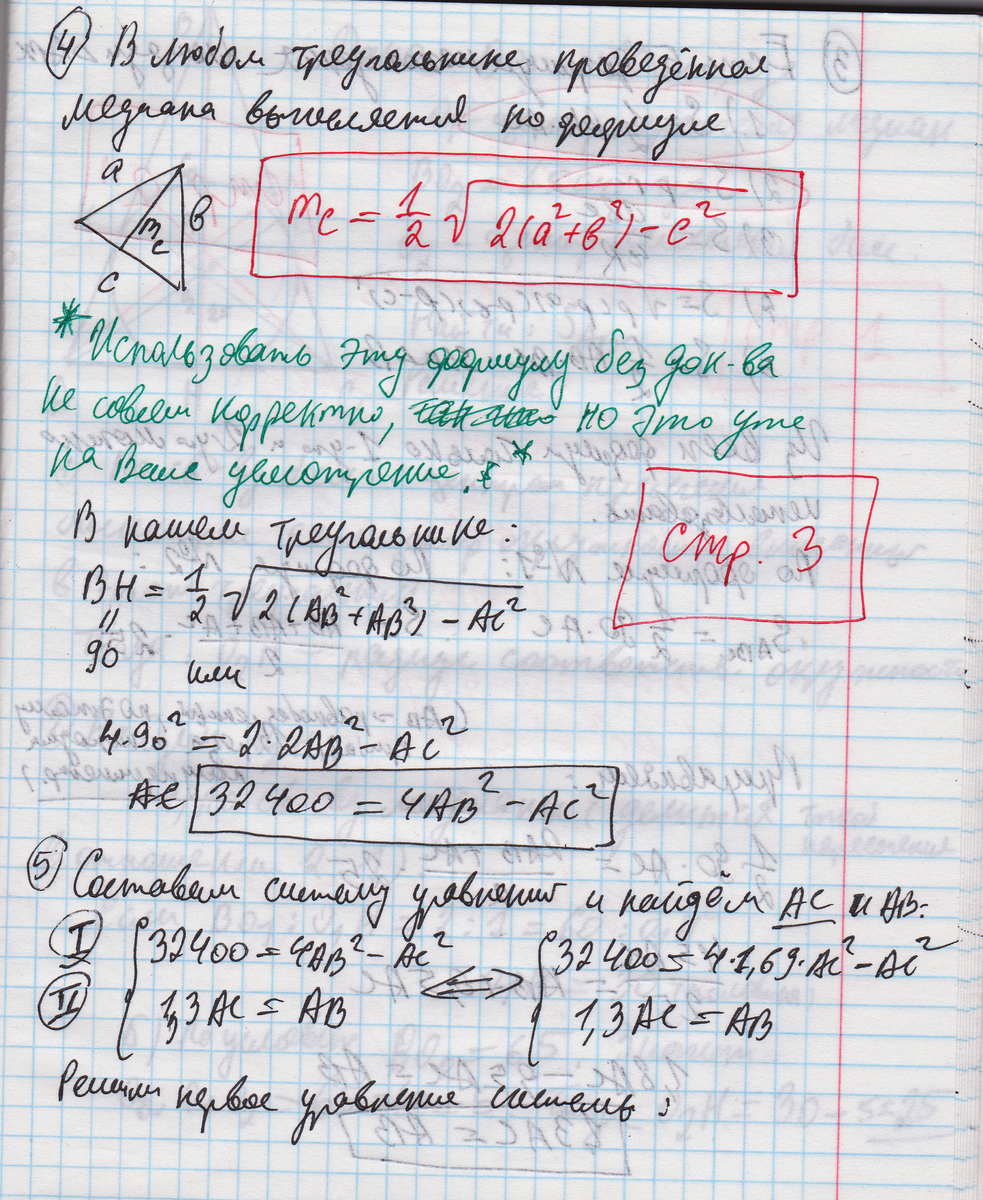 ④ В любом треугольнике проведённая
медиана вычисляется по формуле
a
в
mc
c
mc = 1/2 √(2(a²+в²) - c²)
* Использовать эту формулу без док-ва
не совсем корректно, но это уже
на Ваше усмотрение. *
Стр. 3
В нашем треугольнике:
BH = 1/2 √(2(AB²+AB²) - AC²)
"
90 или
4·90² = 2·2AB² - AC²
32400 = 4AB² - AC²
⑤ Составим систему уравнений и найдём AC и AB:
I { 32400 = 4AB² - AC² ⟺ { 32400 = 4·1,69·AC² - AC²
II { 1,3AC = AB { 1,3AC = AB
Решим первое уравнение системы: